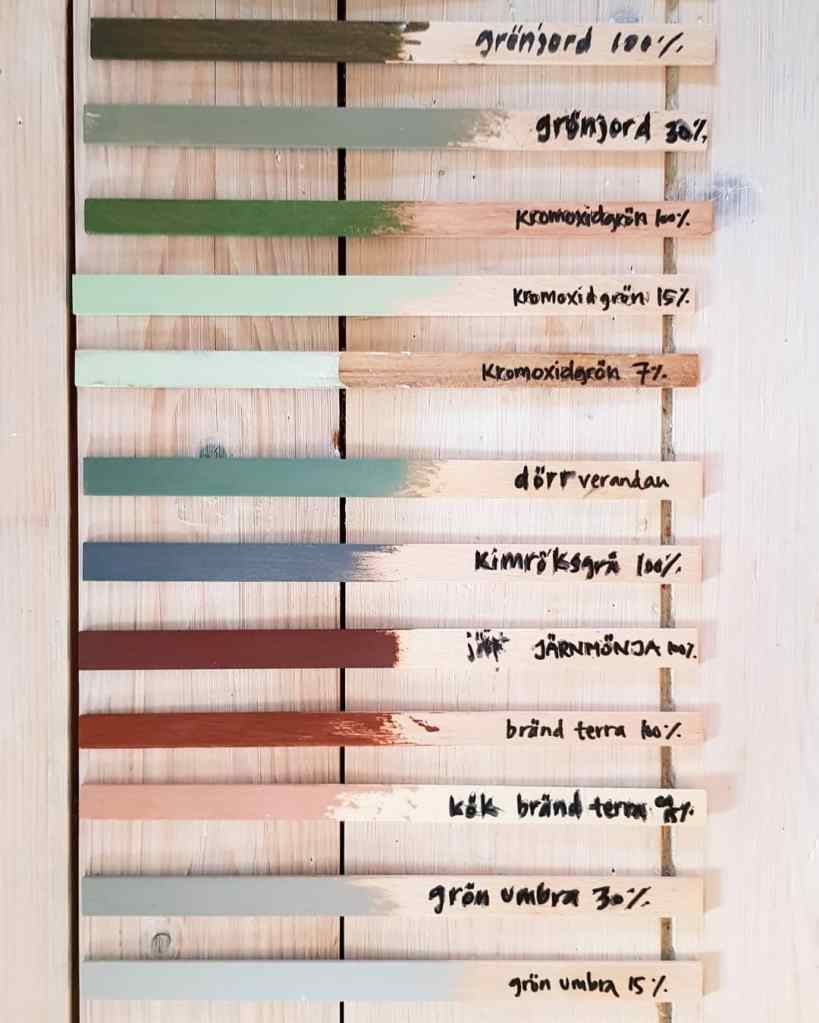 grönjord 100%
grönjord 30%
Kromoxidgrön 100%
Kromoxidgrön 15%
Kromoxidgrön 7%
dörr verandan
Kimröksgrå 100%
JÄRNMÖNJA 100%
bränd terra 100%
kök bränd terra
grön umbra 30%
grön umbra 15%